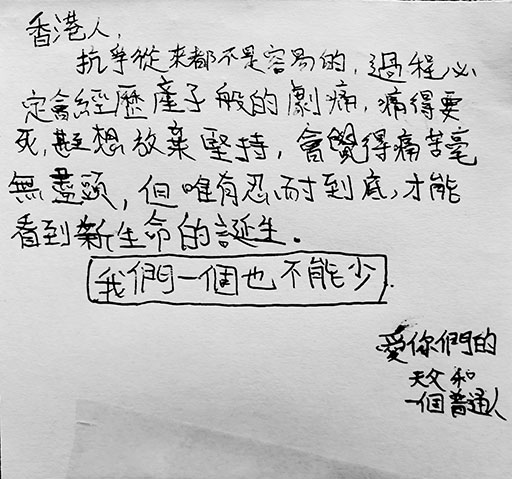 香港人，
抗爭從來都不是容易的，過程必
定會經歷產子般的劇痛，痛得要
死，甚想放棄堅持，會覺得痛苦毫
無盡頭，但唯有忍耐到底，才能
看到新生命的誕生。
我們一個也不能少.
愛你們的
天文和
一個普通人